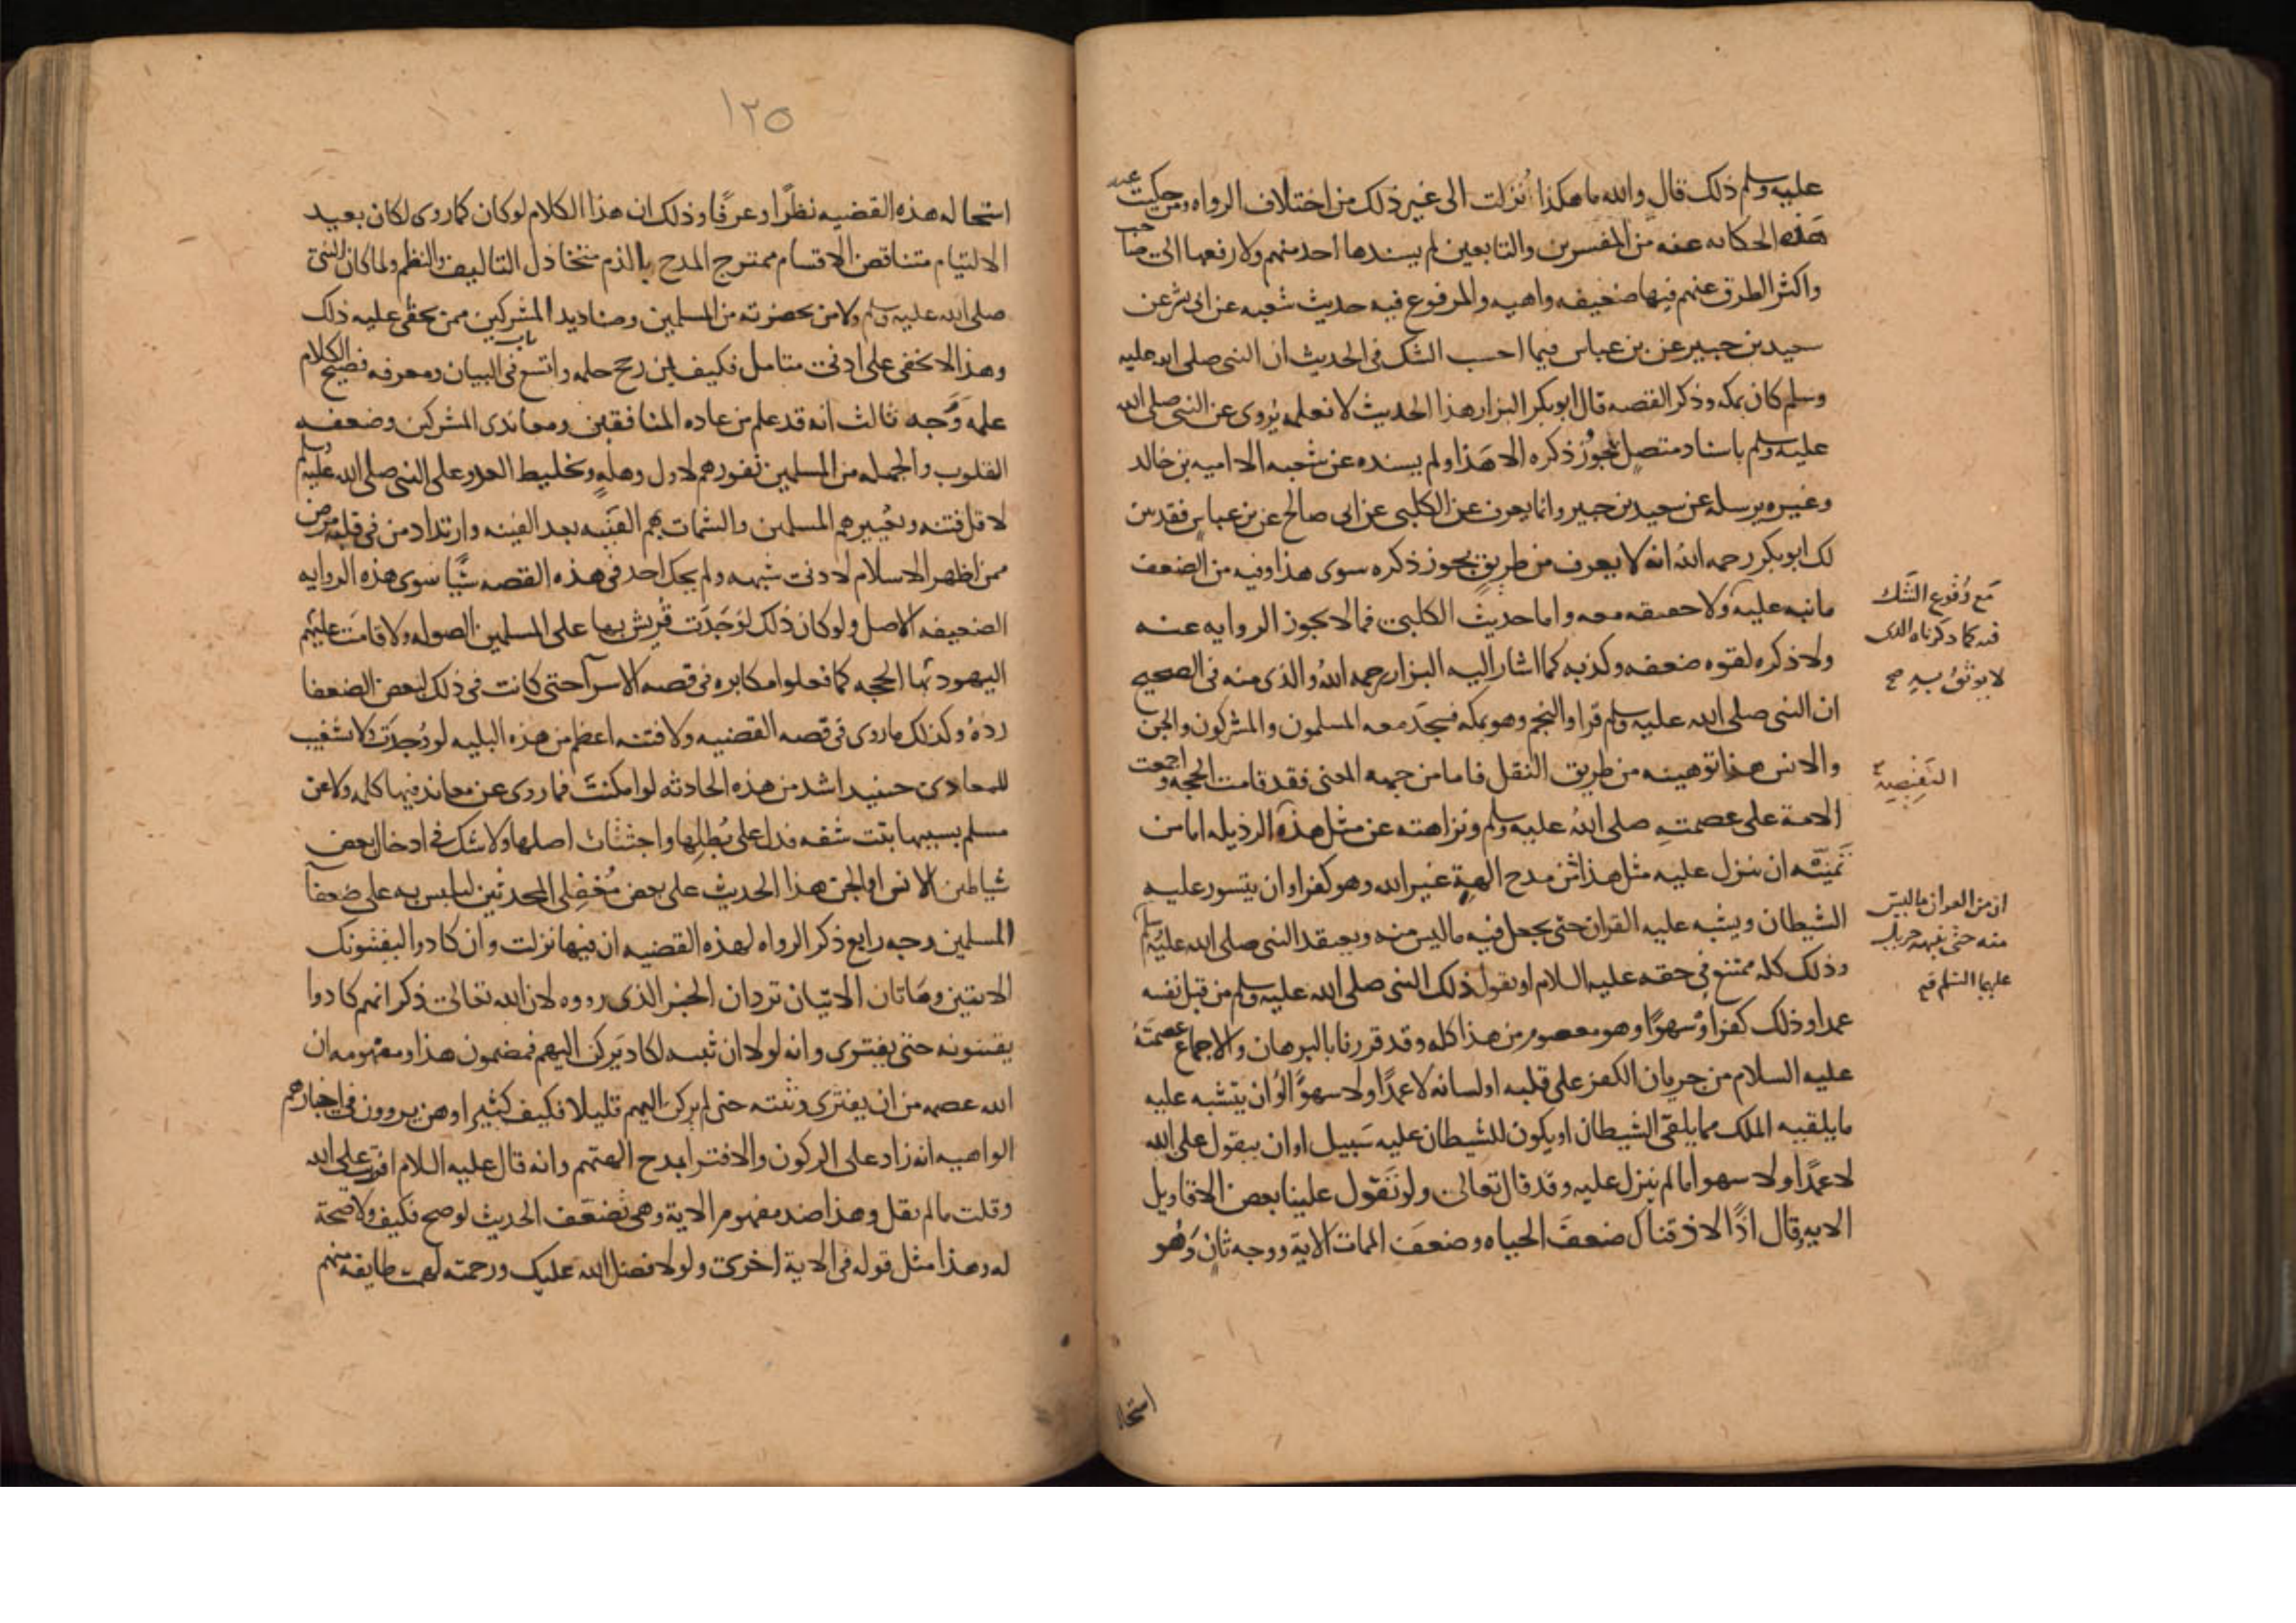 عليه وسلم ذلك قال والله ما هكذا أنزلت الى غير ذلك من اختلاف الرواه ومن حكيت عنه
هذه الحكايه عنه من المفسرين والتابعين لم يسندها احد منهم ولا رفعها الى صاحب
واكثر الطرق عنهم فيها ضعيفه واهيه والمرفوع فيه حديث شعبه عن ابى بشر عن
سعيد بن جبير عن بن عباس فيما احسب الشك فى الحديث ان النبى صلى الله عليه
وسلم كان بمكه وذكر القصه قال ابوبكر البزار هذا الحديث لا نعلمه يُروى عن النبى صلى الله
عليه وسلم باسناد متصل يجوز ذكره الا هذا ولم يسنده عن شعبه الا اميه بن خالد
وغيره يرسله عن سعيد بن جبير وانما يعرف عن الكلبى عن ابى صالح عن بن عباس فقد بين
لك ابوبكر رحمه الله انه لا يعرف من طريق يجوز ذكره سوى هذا وفيه من الضعف
ما نبه عليه ولا حقيقه معه واما حديث الكلبى فما لا يجوز الروايه عنه
مع وُقُوع الشَّك
فيه كما ذكرناه الذى
لا يوثقُ به صح
ولا ذكره لقوه ضعفه وكذبه كما اشار اليه البزار رحمه الله والذى منه فى الصحيح
ان النبى صلى الله عليه وسلم قرا والنجم وهو بمكه فسجد معه المسلمون والمشركون والجن
والانس هذا توهينه من طريق النقل فاما من جهه المعنى فقد قامت الحجه واجمعت
الامة على عصمته صلى الله عليه وسلم ونزاهته عن مثل هذه الرذيله اما من
تمنيّه ان ينزل عليه مثل هذا من مدح الهةٍ غير الله وهو كفر او ان يتسور عليه
الشيطان ويشبه عليه القران حتى يجعل فيه ما ليس منه ويعتقد النبى صلى الله عليه وسلم
ان من القران ما ليس
منه حتى ينبهه جبريل
عليهما السلم
وذلك كله ممتنع فى حقه عليه السلام او يقول ذلك النبى صلى الله عليه وسلم من قبل نفسه
عمدا وذلك كفر او سهوًا وهو معصوم من هذا كله وقد قررنا بالبرهان والاجماع عصمتهُ
عليه السلام من جريان الكفر على قلبه او لسانه لا عمدًا ولا سهوًا او ان يتشبه عليه
ما يلقيه الملك مما يلقى الشيطان او يكون للشيطان عليه سَبيل او ان يتقول على الله
لا عمدًا ولا سهوا ما لم ينزل عليه وقد قال تعالى ولو تَقَول علينا بعض الاقاويل
الايه وقال اذًا لاذقناك ضعفَ الحياه وضعفَ الممات الاية ووجه ثانٍ وَهُو
استحا
١٢٥
استحاله هذه القضيه نظرًا وعرفًا وذلك ان هذا الكلام لو كان كما روى لكان بعيد
الالتيام متناقض الاقسام ممتزج المدح بالذم متخاذل التاليف والنظم ولما كان النبى
صلى الله عليه وسلم ولا من بحضرته من المسلمين وصناديد المشركين ممن يخفى عليه ذلك
وهذا لا يخفى على ادنى متامل فكيف بمن رجح حلمه واتسع فى باب البيان ومعرفه فصيح الكلام
علمه وَوَجه ثالث انه قد علم من عاده المنافقين ومعاندى المشركين وضعفه
القلوب والجهله من المسلمين نفورهم لاول وهلةٍ وتخليط العدو على النبى صلى الله عليه وسلم
لاقل فتنه وتعييرهم المسلمين والشمات بهم الفينه بعد الفينه وارتداد من فى قلبه مرض
ممن اظهر الاسلام لادنى شبهه ولم يحك احد فى هذه القصه شيًا سوى هذه الروايه
الضعيفه الاصل ولو كان ذلك لوَجَدَت قُريش بها على المسلمين الصوله ولاقامَت عليهم
اليهود بها الحجه كما فعلوا مكابره فى قصه الاسرآ حتى كانت فى ذلك لبعض الضعفا
ردة وكذلك ما روى فى قصه القضيه ولا فتنه اعظم من هذه البليه لو وُجِدَت ولا تشغيب
للمعادى حينيد اشد من هذه الحادثه لو امكنت فما روى عن معاند فيها كلمه ولا عن
مسلم بسببها بنت شفه فدل على بُطلِها واجتثاث اصلها ولا شك فى ادخال بعض
شياطين الانس او الجن هذا الحديث على بعض مُغفلى المحدثين ليلبس به على ضعفآ
المسلمين ووجه رابع ذكر الرواه لهذه القضيه ان فيها نزلت وان كادوا ليفتنونك
الايتين وهَاتان الايتان تردان الخبر الذى رووه لان الله تعالى ذكر انهم كادوا
يفتنونه حتى يفترى وانه لولا ان ثبته لكاد يَركن اليهم فمضمون هذا ومفهومه ان
الله عصمه من ان يفترى وثبته حتى لم يركن اليهم قليلا فكيف كثيرا وهن يروون فى اخبارهم
الواهيه انه زاد على الركون والافترا بمدح الهتهم وانه قال عليه السلام افتريت على الله
وقلت ما لم يقل وهذا ضد مفهوم الاية وهى تُضَعّف الحديث لو صح فكيف ولا صحة
له وهذا مثل قوله فى الاية اخرى ولولا فضل الله عليك ورحمته لهمت طايفه منهم